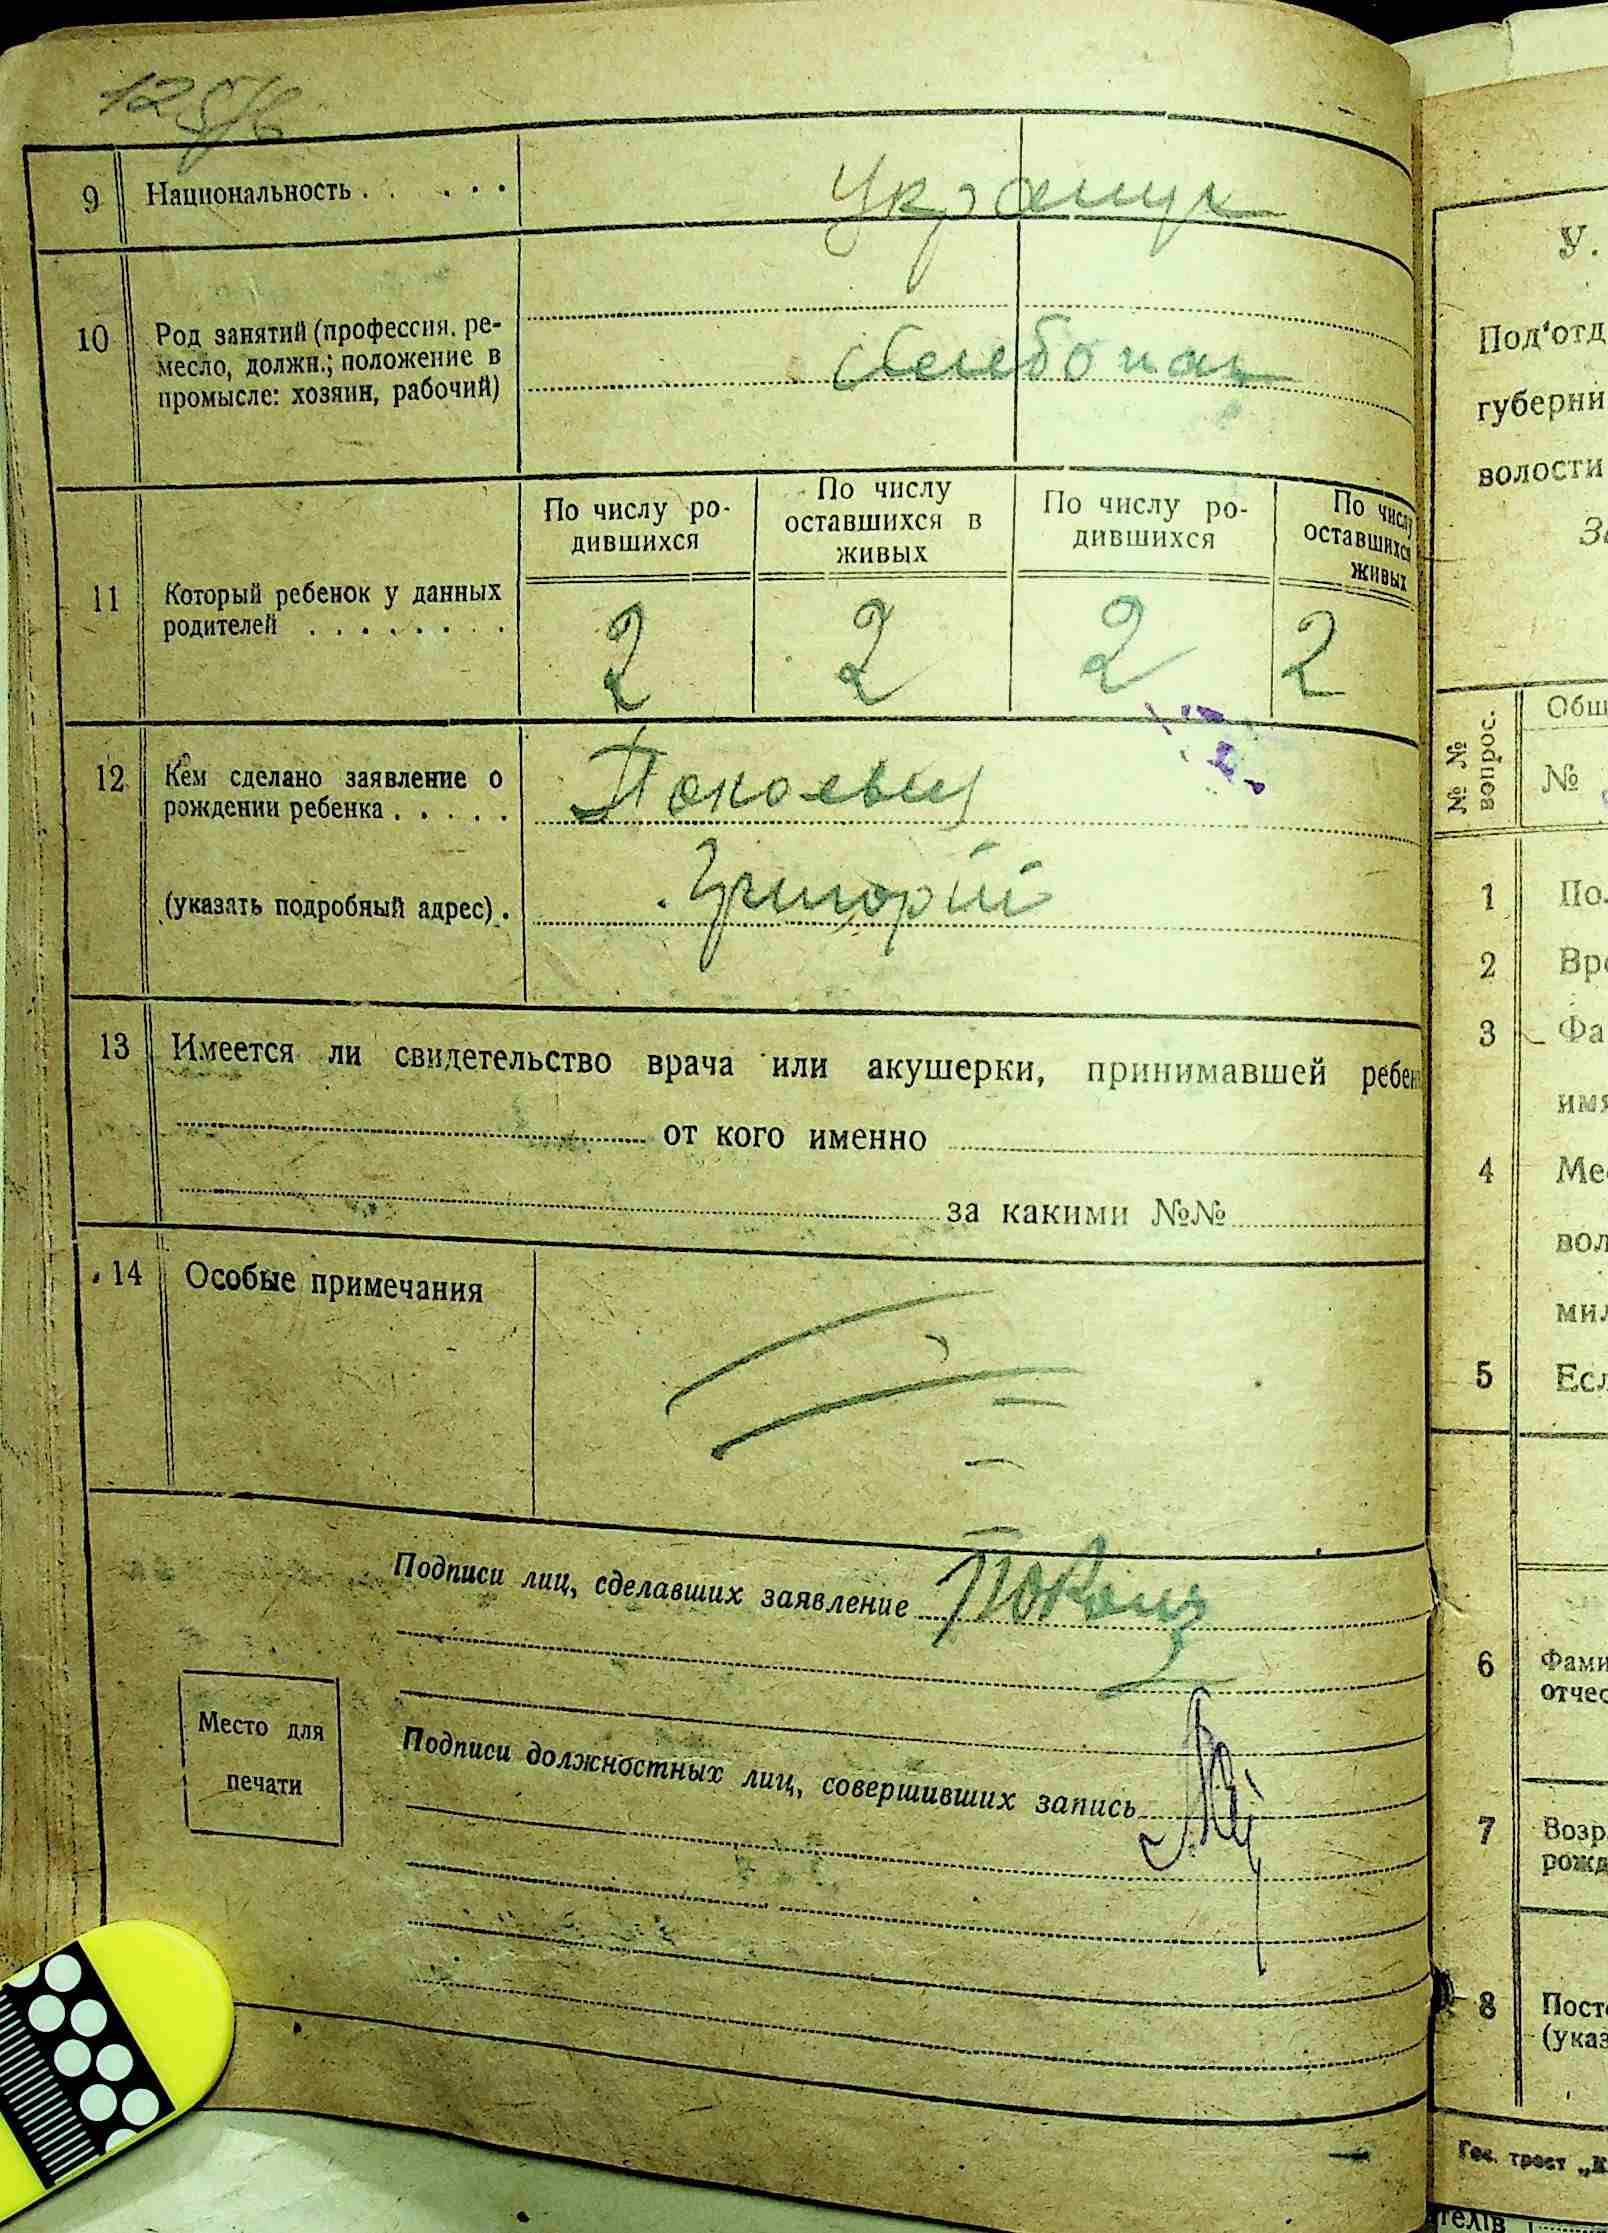 125/6
9 Национальность . . . . . .
10 Род занятий (профессия, ре-
месло, должн.; положение в
промысле: хозяин, рабочий)
Хлебопаш
11 Который ребенок у данных
родителей . . . . . . . .
По числу ро-
дившихся
По числу
оставшихся в
живых
По числу ро-
дившихся
По числу
оставшихся
живых
2 2 2 2
12 Кем сделано заявление о
рождении ребенка . . . . .
(указать подробный адрес) .
Григорій
13 Имеется ли свидетельство врача или акушерки, принимавшей ребен
от кого именно
за какими №№
14 Особые примечания
Подписи лиц, сделавших заявление
Место для
печати
Подписи должностных лиц, совершивших запись
У.
Под'отд
губерни
волости
За
№№
вопрос.
Общ
№
1 Пол
2 Вре
3 Фа
имя
4 Мес
вол
мил
5 Есл
6 Фами
отчес
7 Возр.
рожд
8 Пост
(указ
Гос. трест „К
ателів